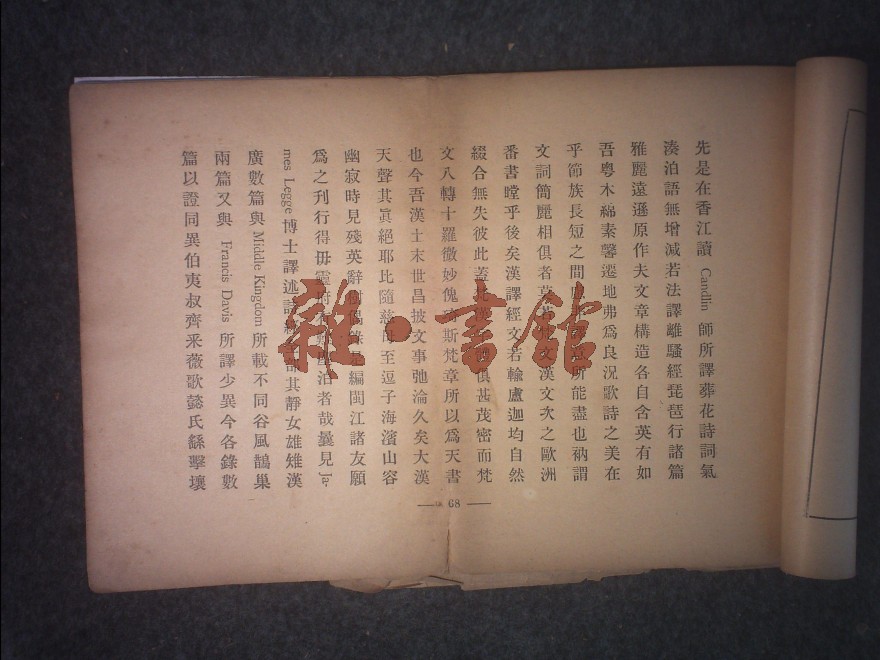 先是在香江讀 Candlin 師所譯葬花詩詞氣
湊泊語無增減若法譯離騷經琵琶行諸篇
雅麗遠遜原作夫文章構造各自含英有如
吾粵木綿素馨遷地弗爲良況歌詩之美在
乎節族長短之間 所能盡也衲謂
文詞簡麗相俱者莫 文漢文次之歐洲
番書瞠乎後矣漢譯經文若輸盧迦均自然
綴合無失彼此蓋 俱甚茂密而梵
文八轉十羅微妙傀琦斯梵章所以爲天書
也今吾漢土末世昌披文事弛淪久矣大漢
天聲其眞絕耶比隨慈 至逗子海濱山容
幽寂時見殘英辭樹偶錄是編閩江諸友願
爲之刊行得毋靈府有難塵泊者哉曩見 Ja-
mes Legge 博士譯述詩經全部其靜女雄雉漢
廣數篇與 Middle Kingdom 所載不同谷風鵲巢
兩篇又與 Francis Davis 所譯少異今各錄數
篇以證同異伯夷叔齊采薇歌懿氏繇擊壤
— 68 —
雜·書館